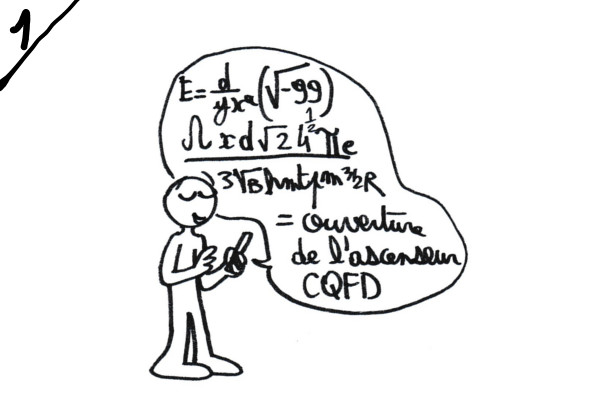 1
E = d/yxa (√-99)
Ω x d √2 4^1/2 πe
3√B hmtpm^3/2 R
= ouverture
de l'ascenseur
CQFD